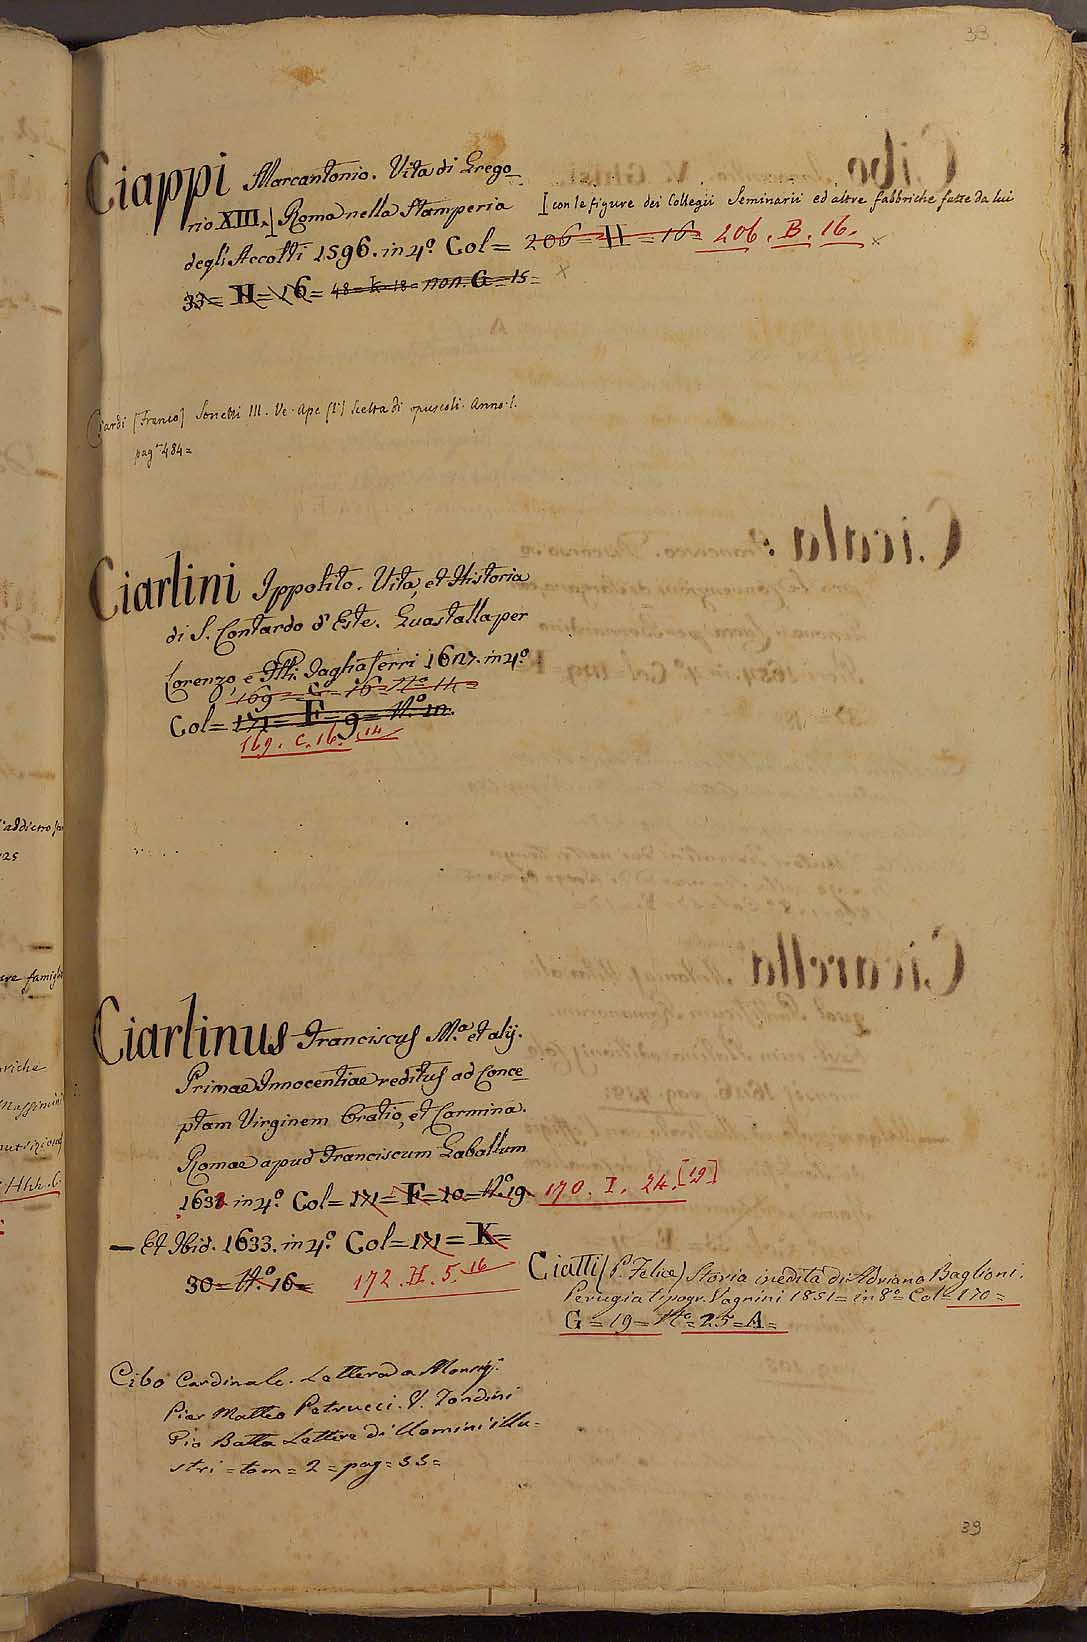 33
Ciappi Marcantonio. Vita di Grego=
rio XIII.] Roma nella Stamperia [con le figure dei Collegii Seminarii ed altre fabbriche fatte da lui
degli Accolti 1596. in 4.º Col= 206= H =16= 206. B. 16. x
33= H= 16= 48= K=18= non. G=15= x
Ciardi [Franco] Sonetti III. Ve. Ape (l') Scelta di opuscoli. Anno. I.
pagª 484=
Ciarlini Ippolito. Vita, et Historia
di S. Contardo d'Este. Guastalla per
Lorenzo, e Flli. Pagliaferri 1627. in 4.º
169= G= 16= Nº 14=
Col= 171= F= 9= Nº 10.
169. C. 16. 14
Ciarlinus Franciscus M.ª et alij.
Primae Innocentiae reditus ad Conce=
ptam Virginem Oratio, et Carmina.
Romae apud Franciscum Caballum
1632 in 4.º Col= 171= F= 10= Nº 19. 170. I. 24. [19]
— Et Ibid. 1633. in 4.º Col= 171= K=
30= Nº 16= 172. H. 5. 16
Ciatti (P. Felice) Storia inedita di Adriano Baglioni.
Perugia tipogr. Vagnini 1851= in 8º= Col= 170=
G= 19= Nº= 25= A=
Cibo Cardinale. Lettera a Monsig.r
Pier Matteo Petrucci. V. Tondini
Gio Batta Lettere di Uomini illu=
stri= tom= 2= pag= 33=
39